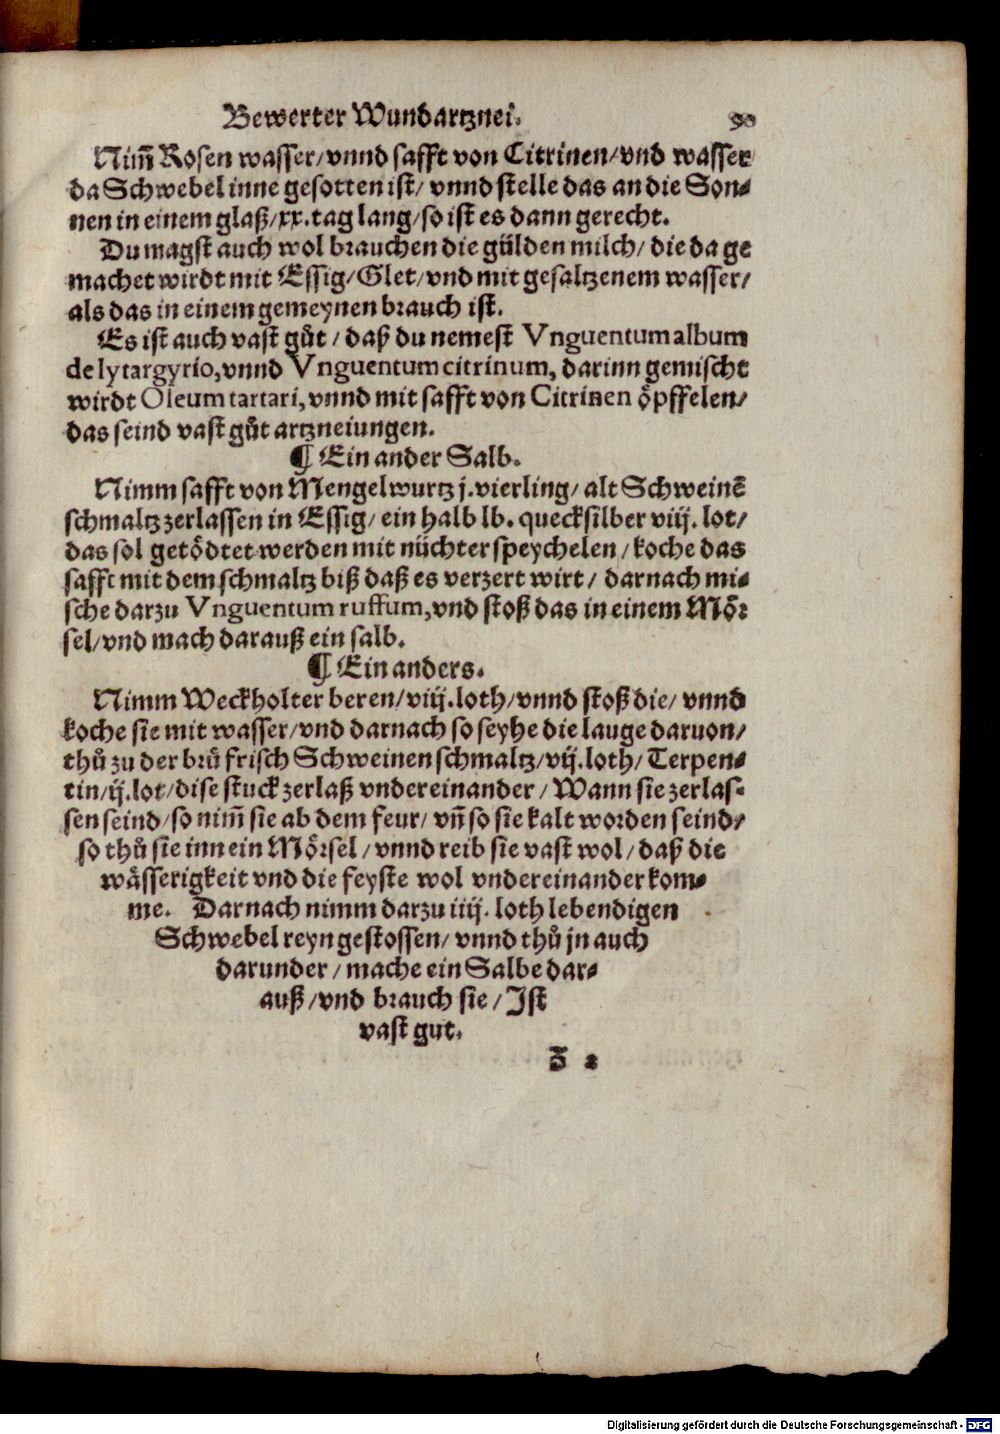 Bewerter Wundartznei. 90
Nim̃ Rosen wasser/vnnd safft von Citrinen/vnd wasser
da Schwebel inne gesotten ist/ vnnd stelle das an die Son⸗
nen in einem glaß/xx.tag lang/so ist es dann gerecht.
Du magst auch wol brauchen die gülden milch/ die da ge
machet wirdt mit Essig/Glet/vnd mit gesaltzenem wasser/
als das in einem gemeynen brauch ist.
Es ist auch vast gůt / daß du nemest Vnguentum album
de lytargyrio,vnnd Vnguentum citrinum, darinn gemischt
wirdt Oleum tartari, vnnd mit safft von Citrinen öpffelen/
das seind vast gůt artzneiungen.
¶ Ein ander Salb.
Nimm safft von Mengelwurtz j.vierling/ alt Schweinẽ
schmaltz zerlassen in Essig/ ein halb lb. quecksilber viij. lot/
das sol getödtet werden mit nüchter speychelen / koche das
safft mit dem schmaltz biß daß es verzert wirt / darnach mi⸗
sche darzu Vnguentum ruffum,vnd stoß das in einem Mör
sel/vnd mach darauß ein salb.
¶ Ein anders.
Nimm Weckholter beren/viij.loth/vnnd stoß die/ vnnd
koche sie mit wasser/vnd darnach so seyhe die lauge daruon/
thů zu der brů frisch Schweinen schmaltz/vij.loth/ Terpen⸗
tin/ij.lot/dise stuck zerlaß vndereinander / Wann sie zerlas⸗
sen seind/so nim̃ sie ab dem feur/ vñ so sie kalt worden seind/
so thů sie inn ein Mörsel / vnnd reib sie vast wol / daß die
wässerigkeit vnd die feyste wol vndereinander kom⸗
me. Darnach nimm darzu iiij. loth lebendigen
Schwebel reyn gestossen/ vnnd thů jn auch
darunder / mache ein Salbe dar⸗
auß /vnd brauch sie / Ist
vast gut.
Z 2
Digitalisierung gefördert durch die Deutsche Forschungsgemeinschaft - DFG